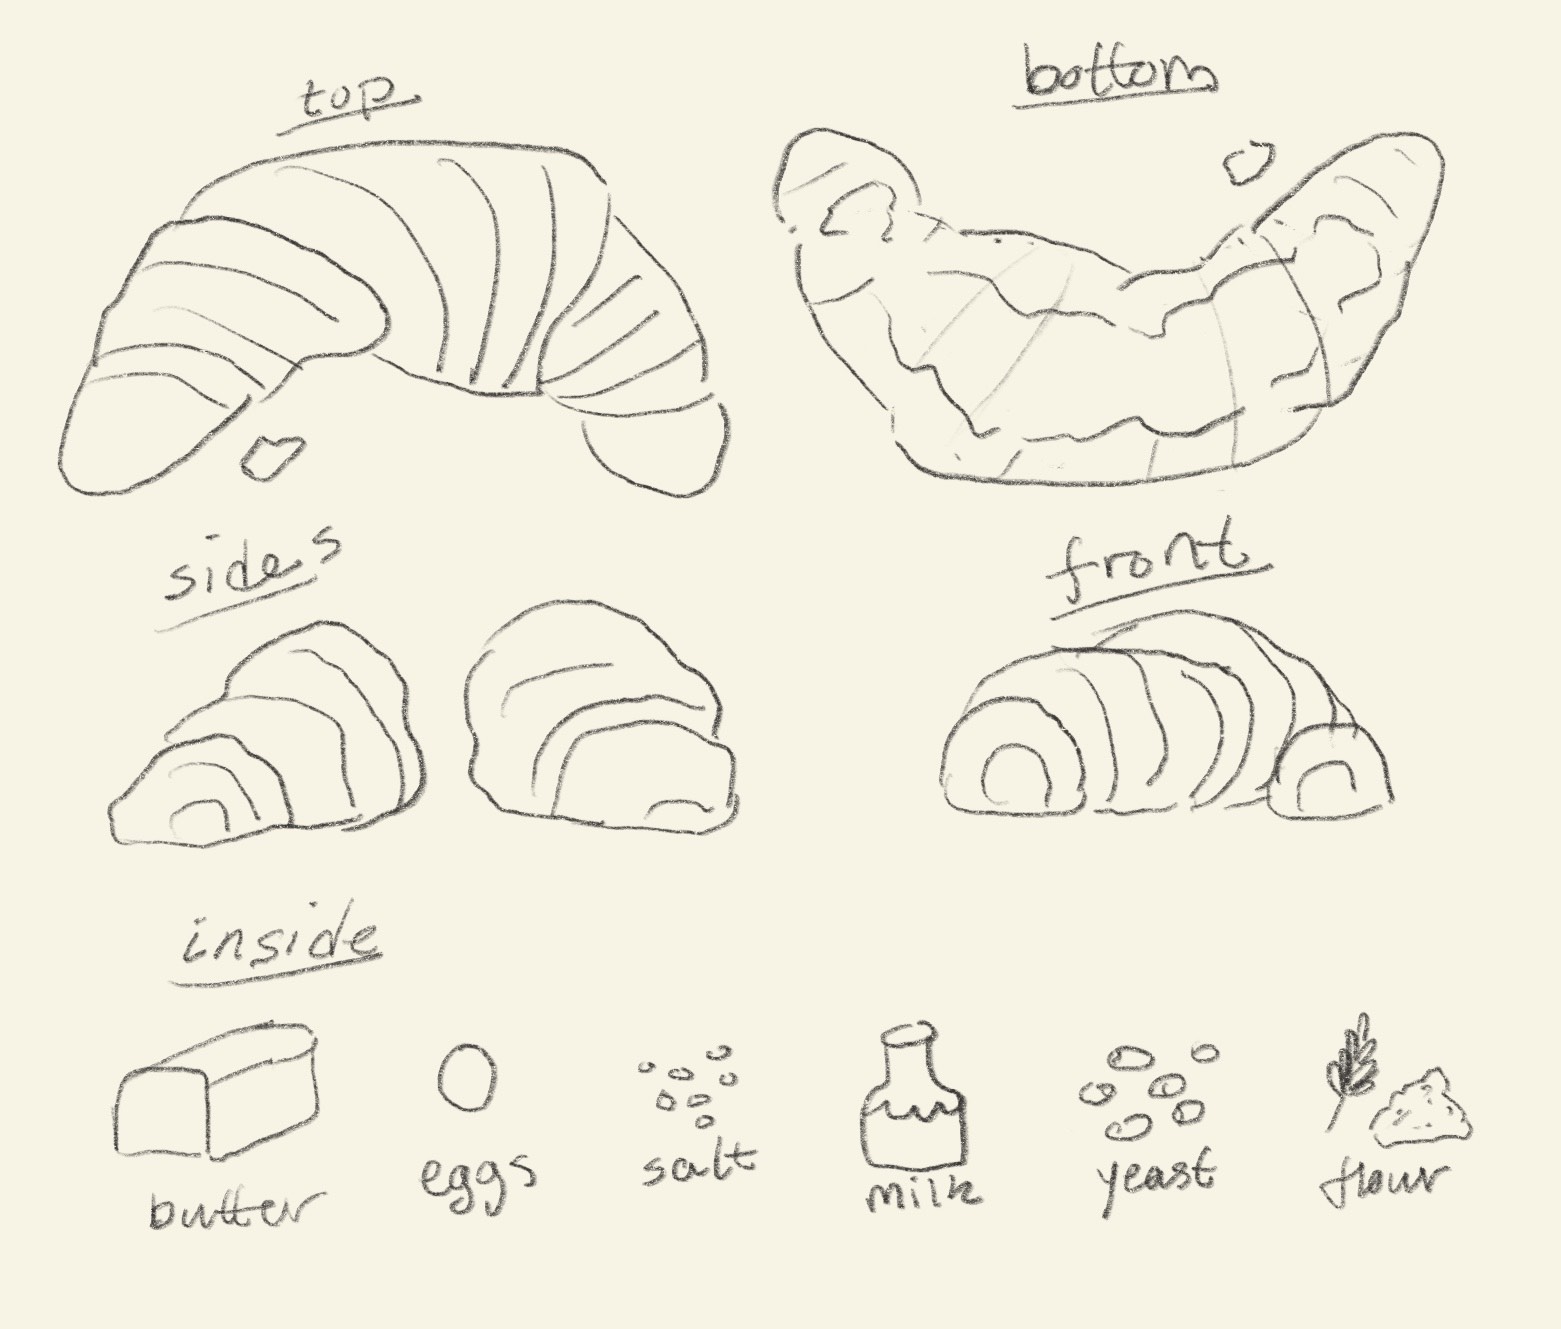 top
bottom
sides
front
inside
butter
eggs
salt
milk
yeast
flour